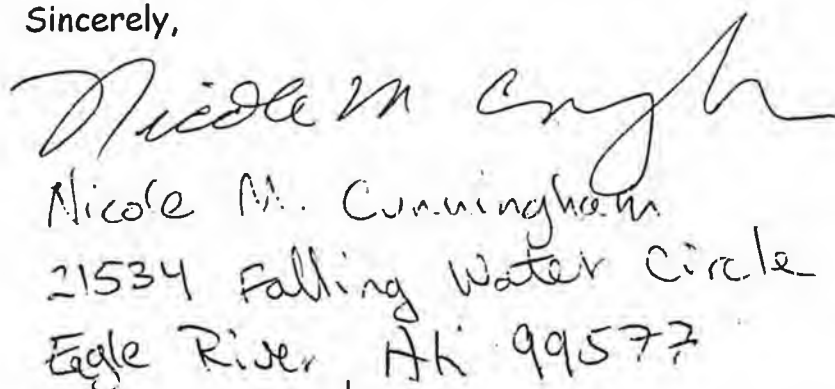 Sincerely,
Nicole M
Nicole M. Cunningham
21534 Falling Water Circle
Eagle River, AK 99577